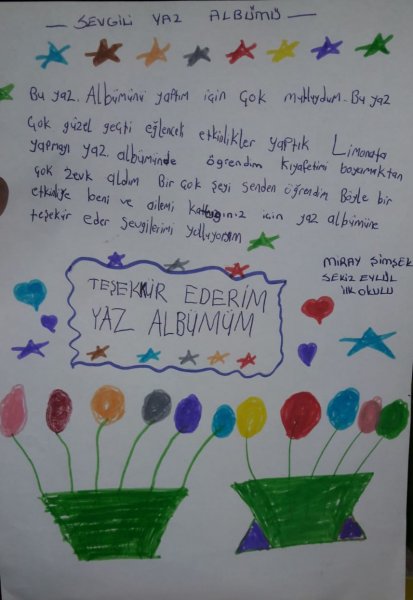 — SEVGİLİ YAZ ALBÜMÜ —
Bu yaz Albümünü yaptım için Çok mutluydum. Bu yaz
Çok güzel geçti eğlencek etkinlikler yaptık Limonata
yapmayı yaz albümünde öğrendim Kıyafetimi boyamaktan
çok zevk aldım Bir çok şeyi senden öğrendim Böyle bir
etkinliye beni ve ailemi için yaz albümüne
teşekür eder sevgilerimi yolluyorum
MİRAY ŞİMŞEK
SEKİZ EYLÜL
İLKOKULU
TEŞEKKÜR EDERİM
YAZ ALBÜMÜM